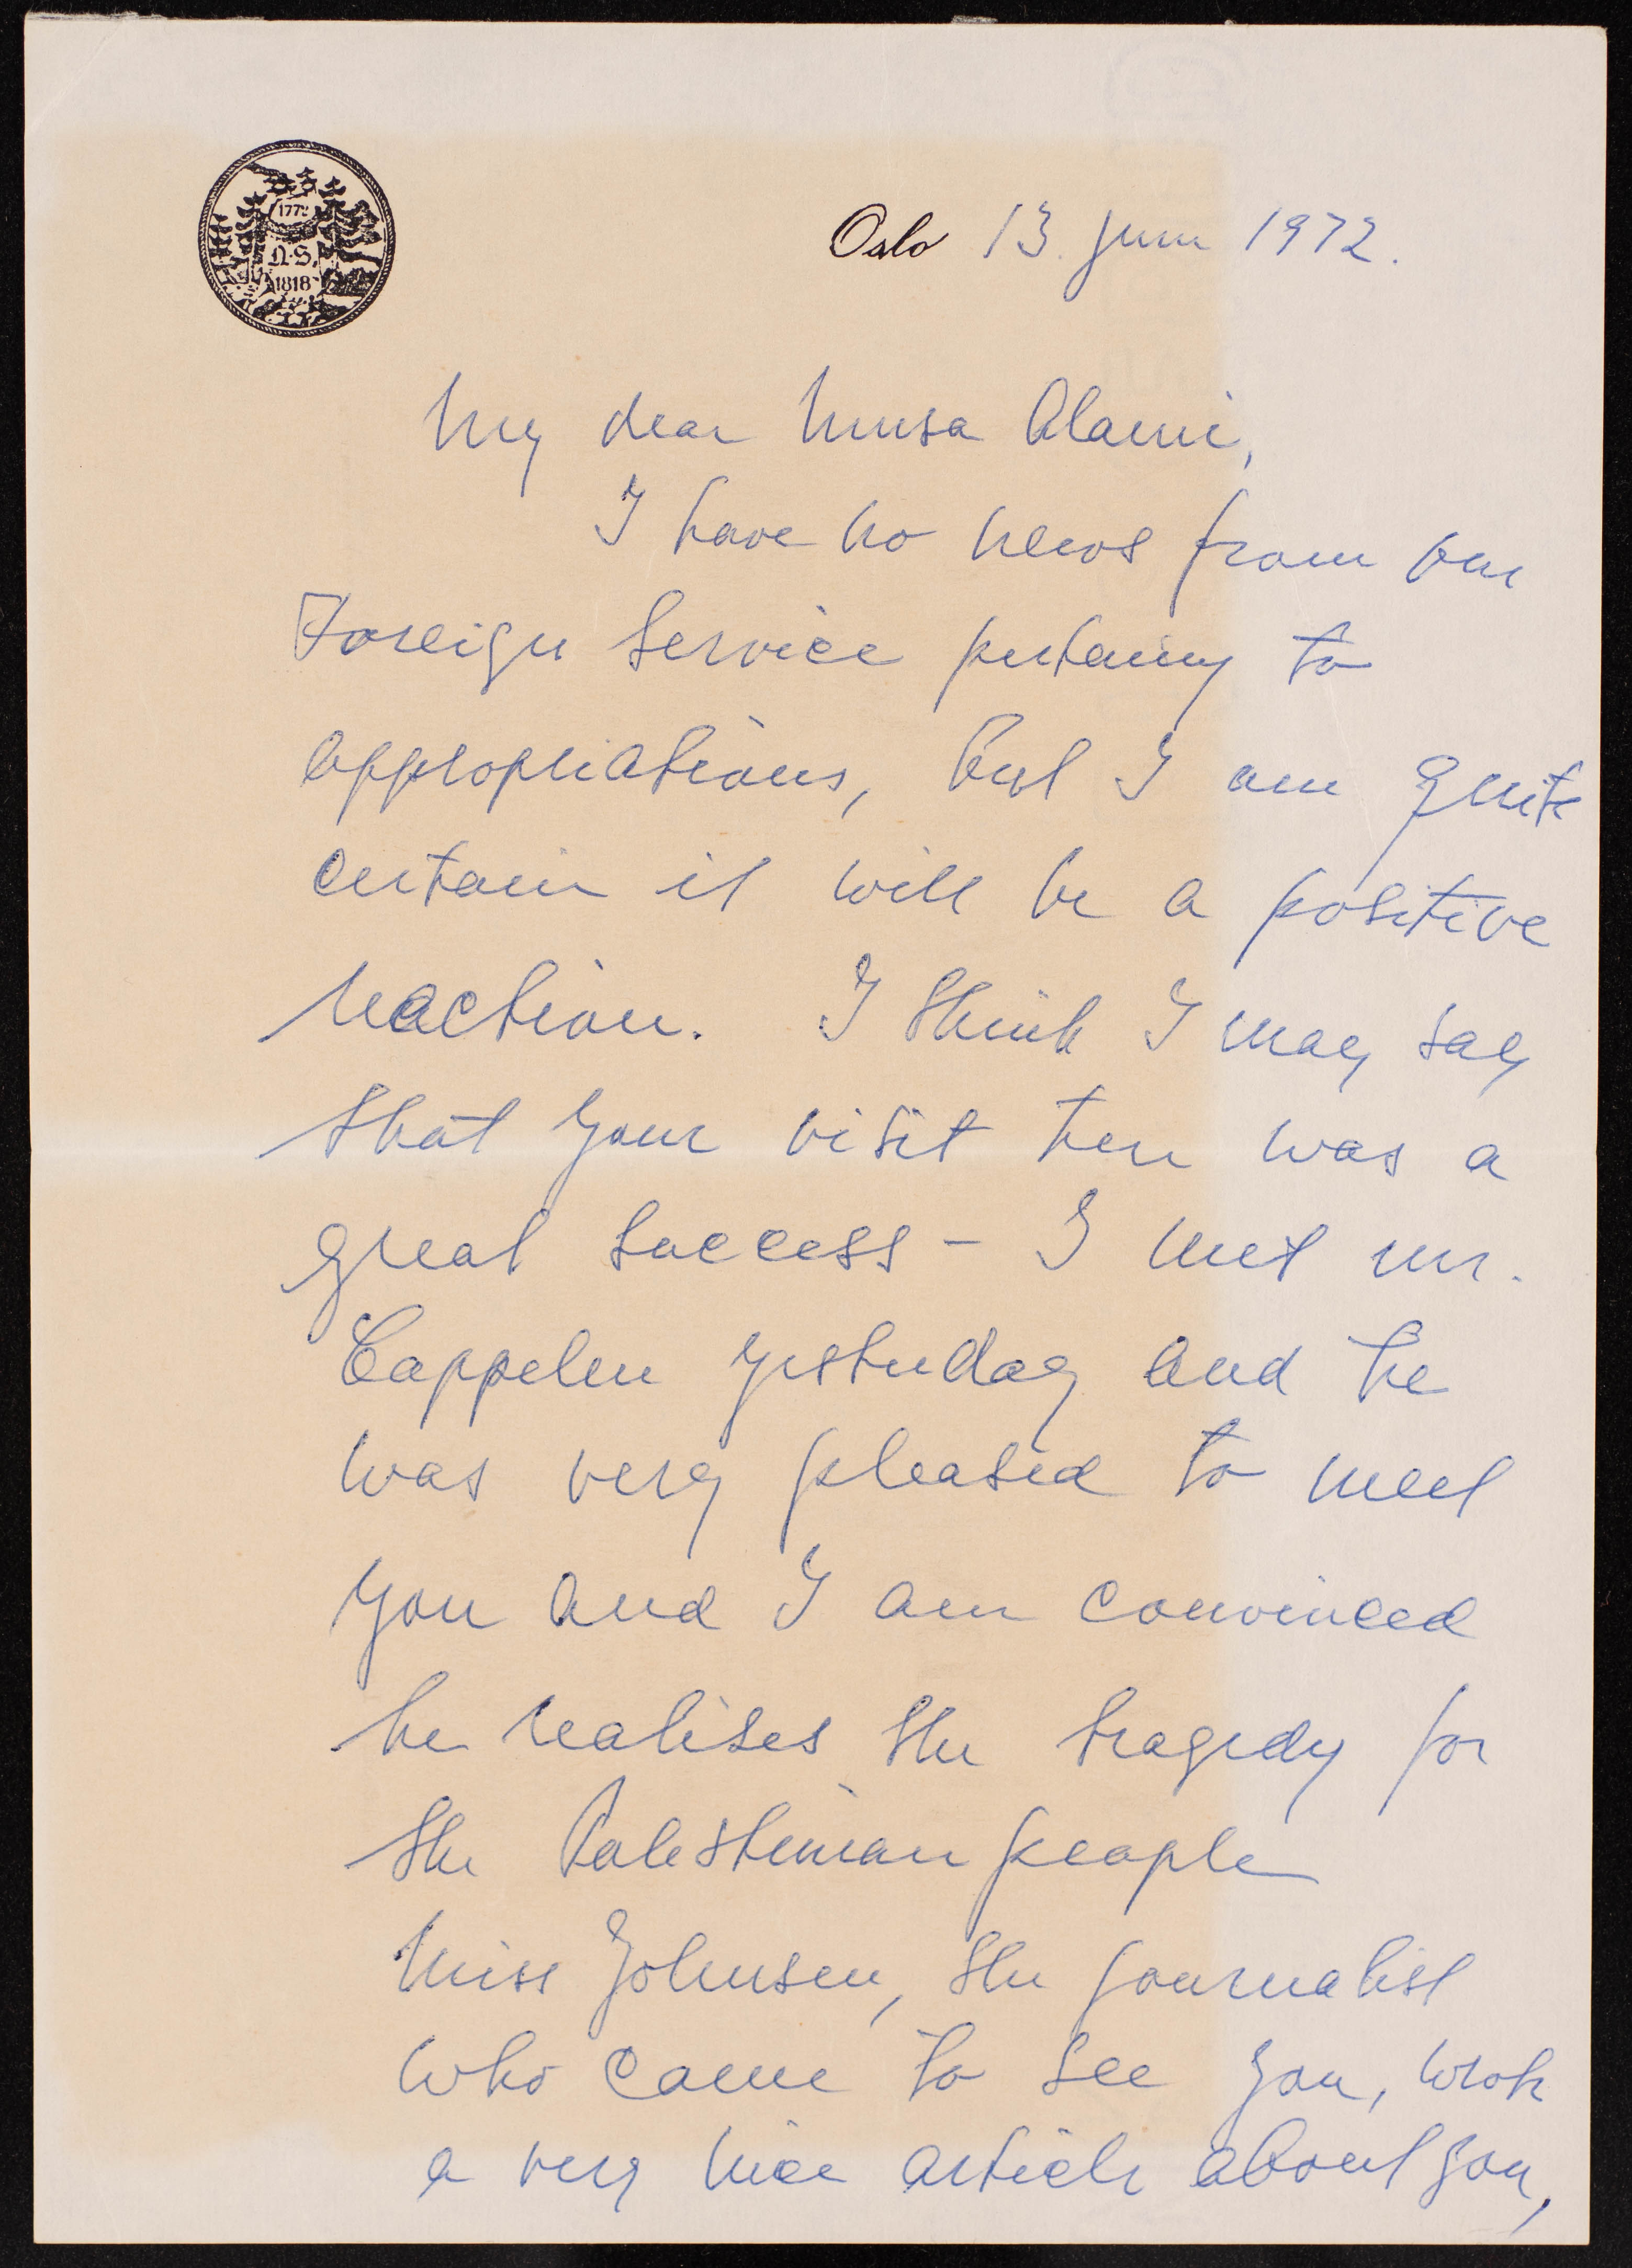 1772
N.S.
1818
Oslo 13. June 1972.
My dear Musa Alami,
I have no news from our
Foreign Service pertaining to
appropriations, but I am quite
certain it will be a positive
reaction. I think I may say
that your visit here was a
great success - I met mr.
Cappelen yesterday and he
was very pleased to meet
you and I am convinced
he realises the tragedy for
the Palestinian people
Miss Johnsen, the journalist
who came to see you, wrote
a very nice article about you,